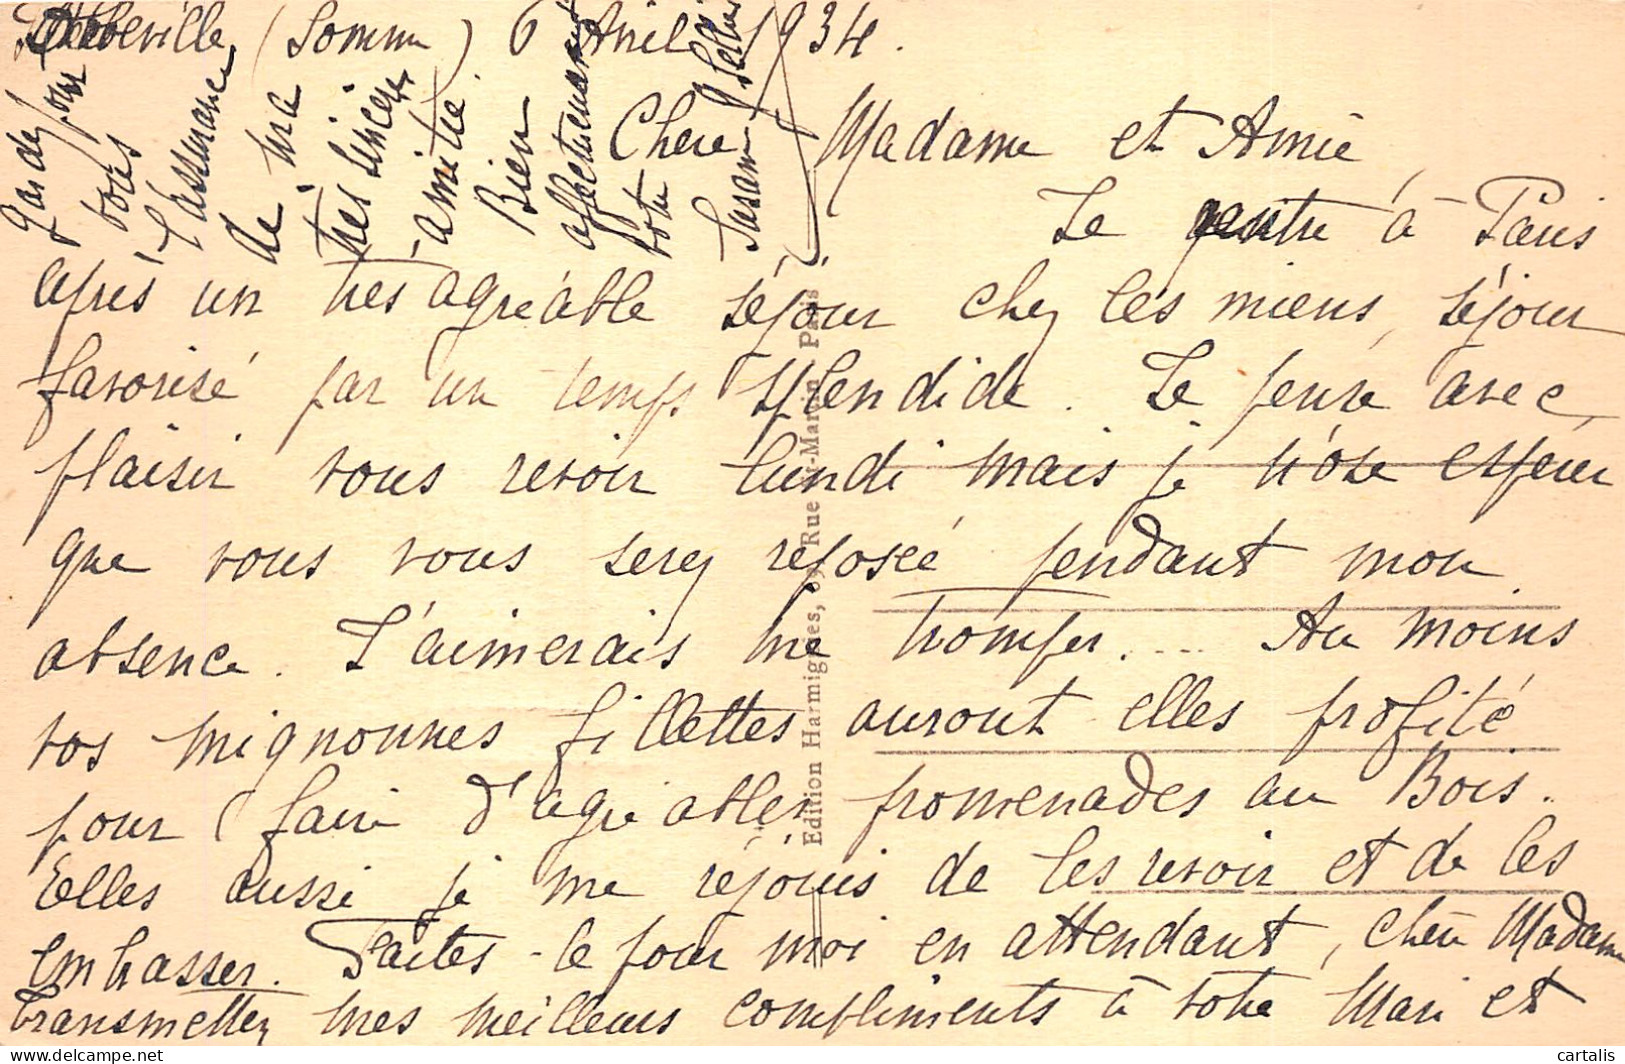 Abbeville (Somme) 6 Avril 1934.
Chère Madame et Amie
Je rentre à Paris
après un très agréable séjour chez les miens, séjour
favorisé par un temps splendide. Je serai avec
plaisir vous revoir lundi mais je n'ose espérer
que vous vous serez reposée pendant mon
absence. J'aimerais me tromper.... Au moins
vos mignonnes fillettes auront elles profité
pour faire d'agréables promenades au Bois.
Elles aussi je me réjouis de les revoir et de les
embrasser. Faites-le pour moi en attendant, chère Madame
Transmettez mes meilleurs compliments à votre Mari et
gardez pour
vous
l'assurance
de ma
très sincère
amitié.
Bien
affectueusement
votre
Susann
Edition Harmignies, Rue St-Martin Paris
cartalis